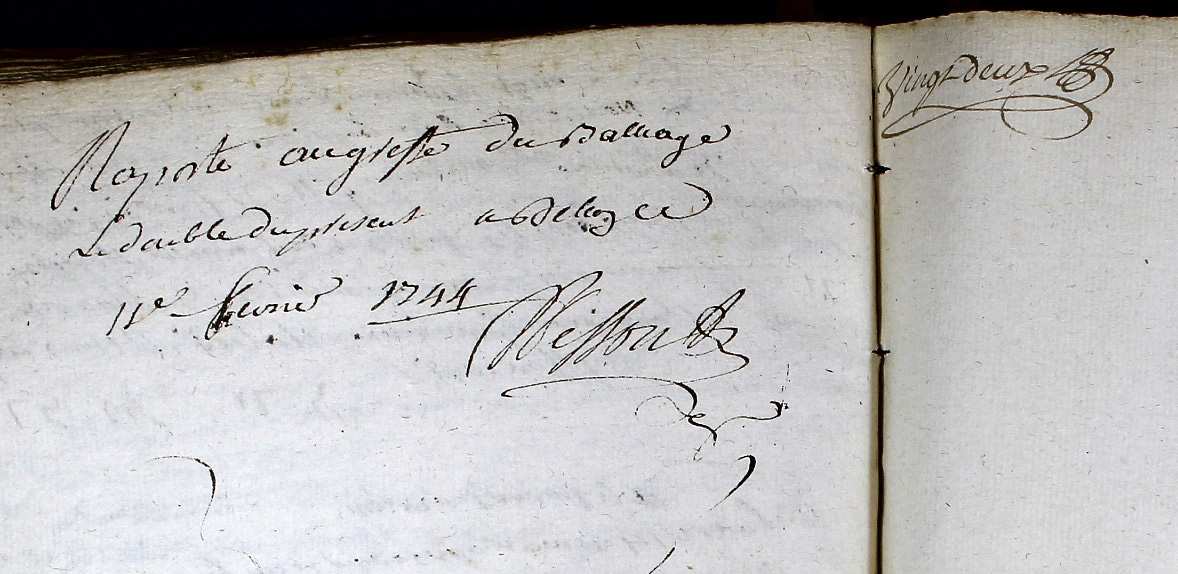 Raporté au greffe du Balliage
Le double du present a Belley ce
11e fevrier 1744
Vingt deux